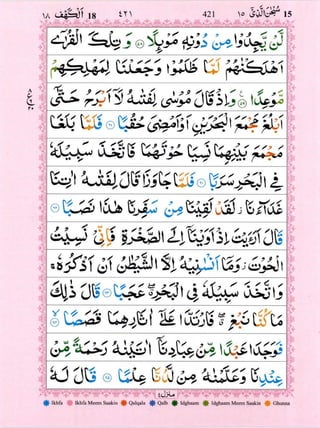 ١٨ اَلْكَهْف 18 ٤٢١ 421 سُبْحٰنَ الَّذِىْ ١٥ 15
لَّنْ يَّجِدُوْا مِنْ دُوْنِهٖ مَوْىِٕلًا ۝٥٨ وَتِلْكَ الْقُرٰٓى
اَهْلَكْنٰهُمْ لَمَّا ظَلَمُوْا وَجَعَلْنَا لِمَهْلِكِهِمْ
مَّوْعِدًا ۝٥٩ وَاِذْ قَالَ مُوْسٰى لِفَتٰىهُ لَاۤ اَبْرَحُ حَتّٰۤى
اَبْلُغَ مَجْمَعَ الْبَحْرَيْنِ اَوْ اَمْضِىَ حُقُبًا ۝٦٠ فَلَمَّا بَلَغَا
مَجْمَعَ بَيْنِهِمَا نَسِيَا حُوْتَهُمَا فَاتَّخَذَ سَبِيْلَهٗ
فِى الْبَحْرِ سَرَبًا ۝٦١ فَلَمَّا جَاوَزَا قَالَ لِفَتٰىهُ اٰتِنَا
غَدَآءَنَا ۫ لَقَدْ لَقِيْنَا مِنْ سَفَرِنَا هٰذَا نَصَبًا ۝٦٢
قَالَ اَرَءَيْتَ اِذْ اَوَيْنَاۤ اِلَى الصَّخْرَةِ فَاِنِّىْ نَسِيْتُ
الْحُوْتَ ۫ وَمَاۤ اَنْسٰىنِيْهُ اِلَّا الشَّيْطٰنُ اَنْ اَذْكُرَهٗ ۚ
وَاتَّخَذَ سَبِيْلَهٗ فِى الْبَحْرِ ۖ عَجَبًا ۝٦٣ قَالَ ذٰلِكَ
مَا كُنَّا نَبْغِ ۖ فَارْتَدَّا عَلٰۤى اٰثَارِهِمَا قَصَصًا ۝٦٤
فَوَجَدَا عَبْدًا مِّنْ عِبَادِنَاۤ اٰتَيْنٰهُ رَحْمَةً مِّنْ
عِنْدِنَا وَعَلَّمْنٰهُ مِنْ لَّدُنَّا عِلْمًا ۝٦٥ قَالَ لَهٗ
منزل ٤
Ikhfa Ikhfa Meem Saakin Qalqala Qalb Idghaam Idghaam Meem Saakin Ghunna